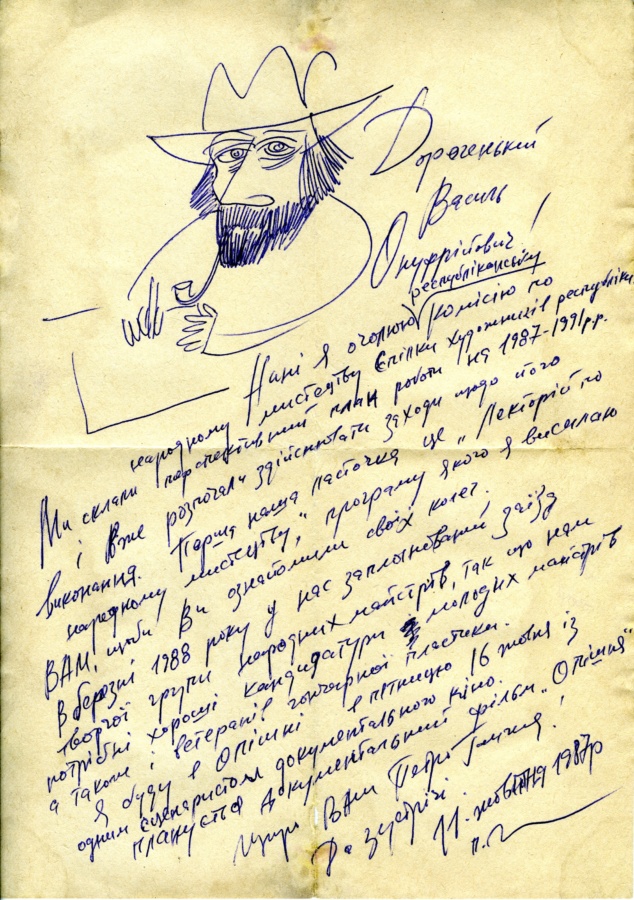 Дорогенький
Василь
Онуфрійович!
республіканську
Нані я очолюю комісію по
народному мистецтву Спілки художників республіки.
Ми склали перспективний план роботи на 1987-1991р.р.
і вже розпочали здійснювати заходи щодо його
виконання. Перша наша ласточка це „Лекторій по
народному мистецтву," програму якого я висилаю
ВАМ, щоби Ви ознайомили своїх колег.
В березні 1988 року у нас запланований заїзд
творчої групи народних майстрів, так що нам
потрібні хороші кандидатури молодих майстрів
а також і ветеранів гончарної пластики.
Я буду в Опішні в п'ятницю 16 жовтня із
одним сценаристом документального кіно.
Планується документальний фільм „Опішня"
Щиро Ваш Петро Ганжа
До зустрічі!
11. жовтня 1987р
п. Г